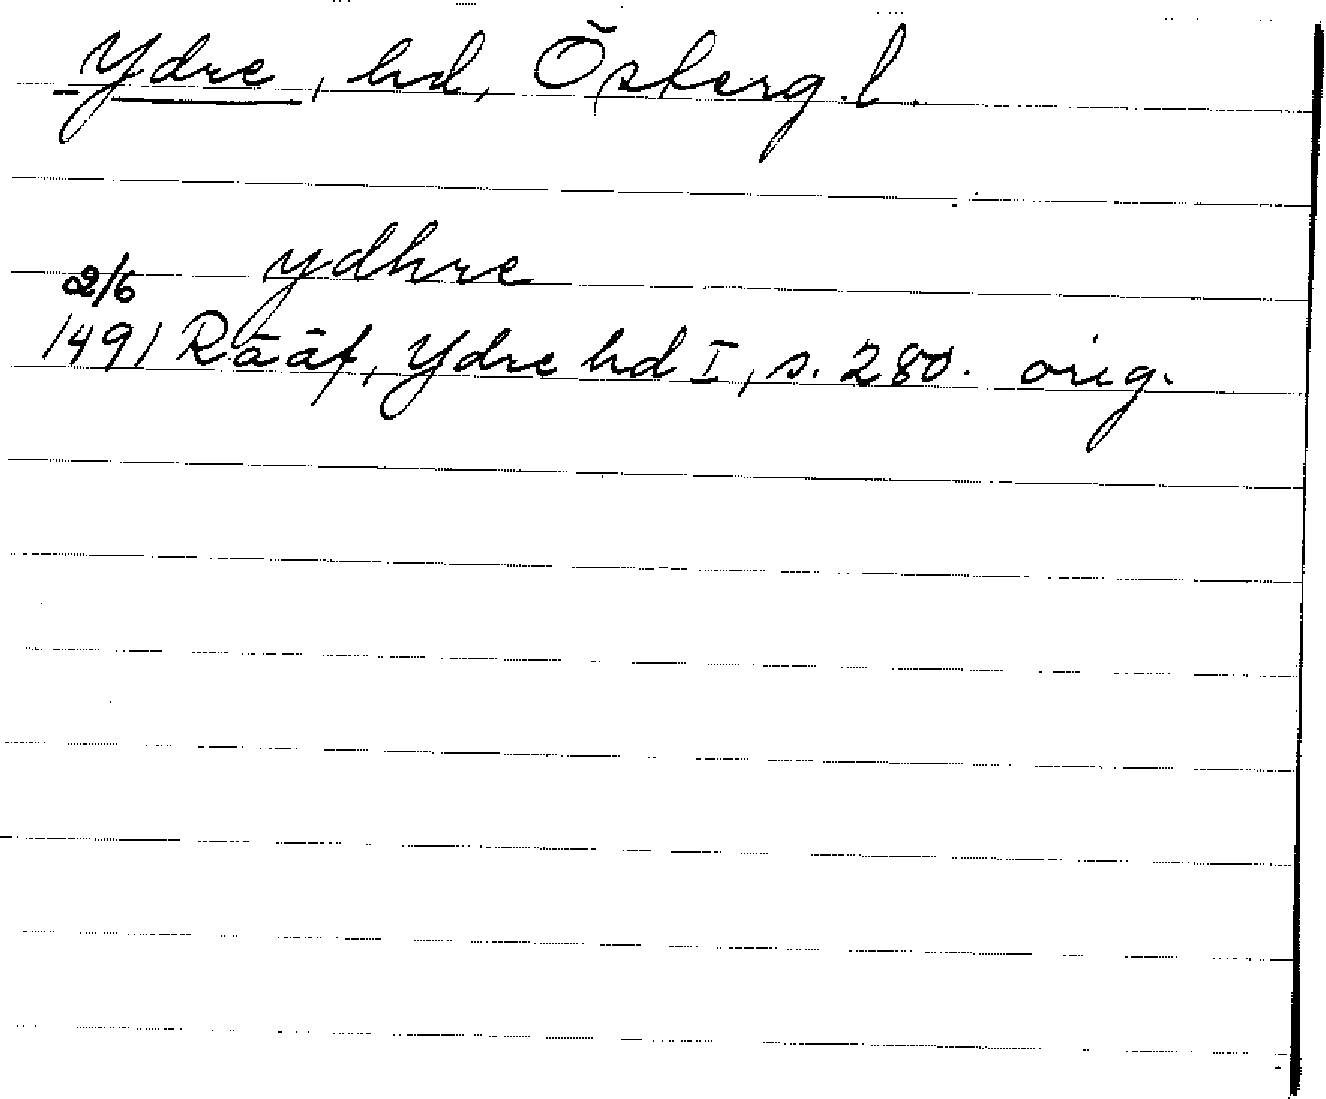 Ydre, hd, Österg. l.
ydhre
2/6
1491 Rääf, Ydre hd I, s. 280. orig.